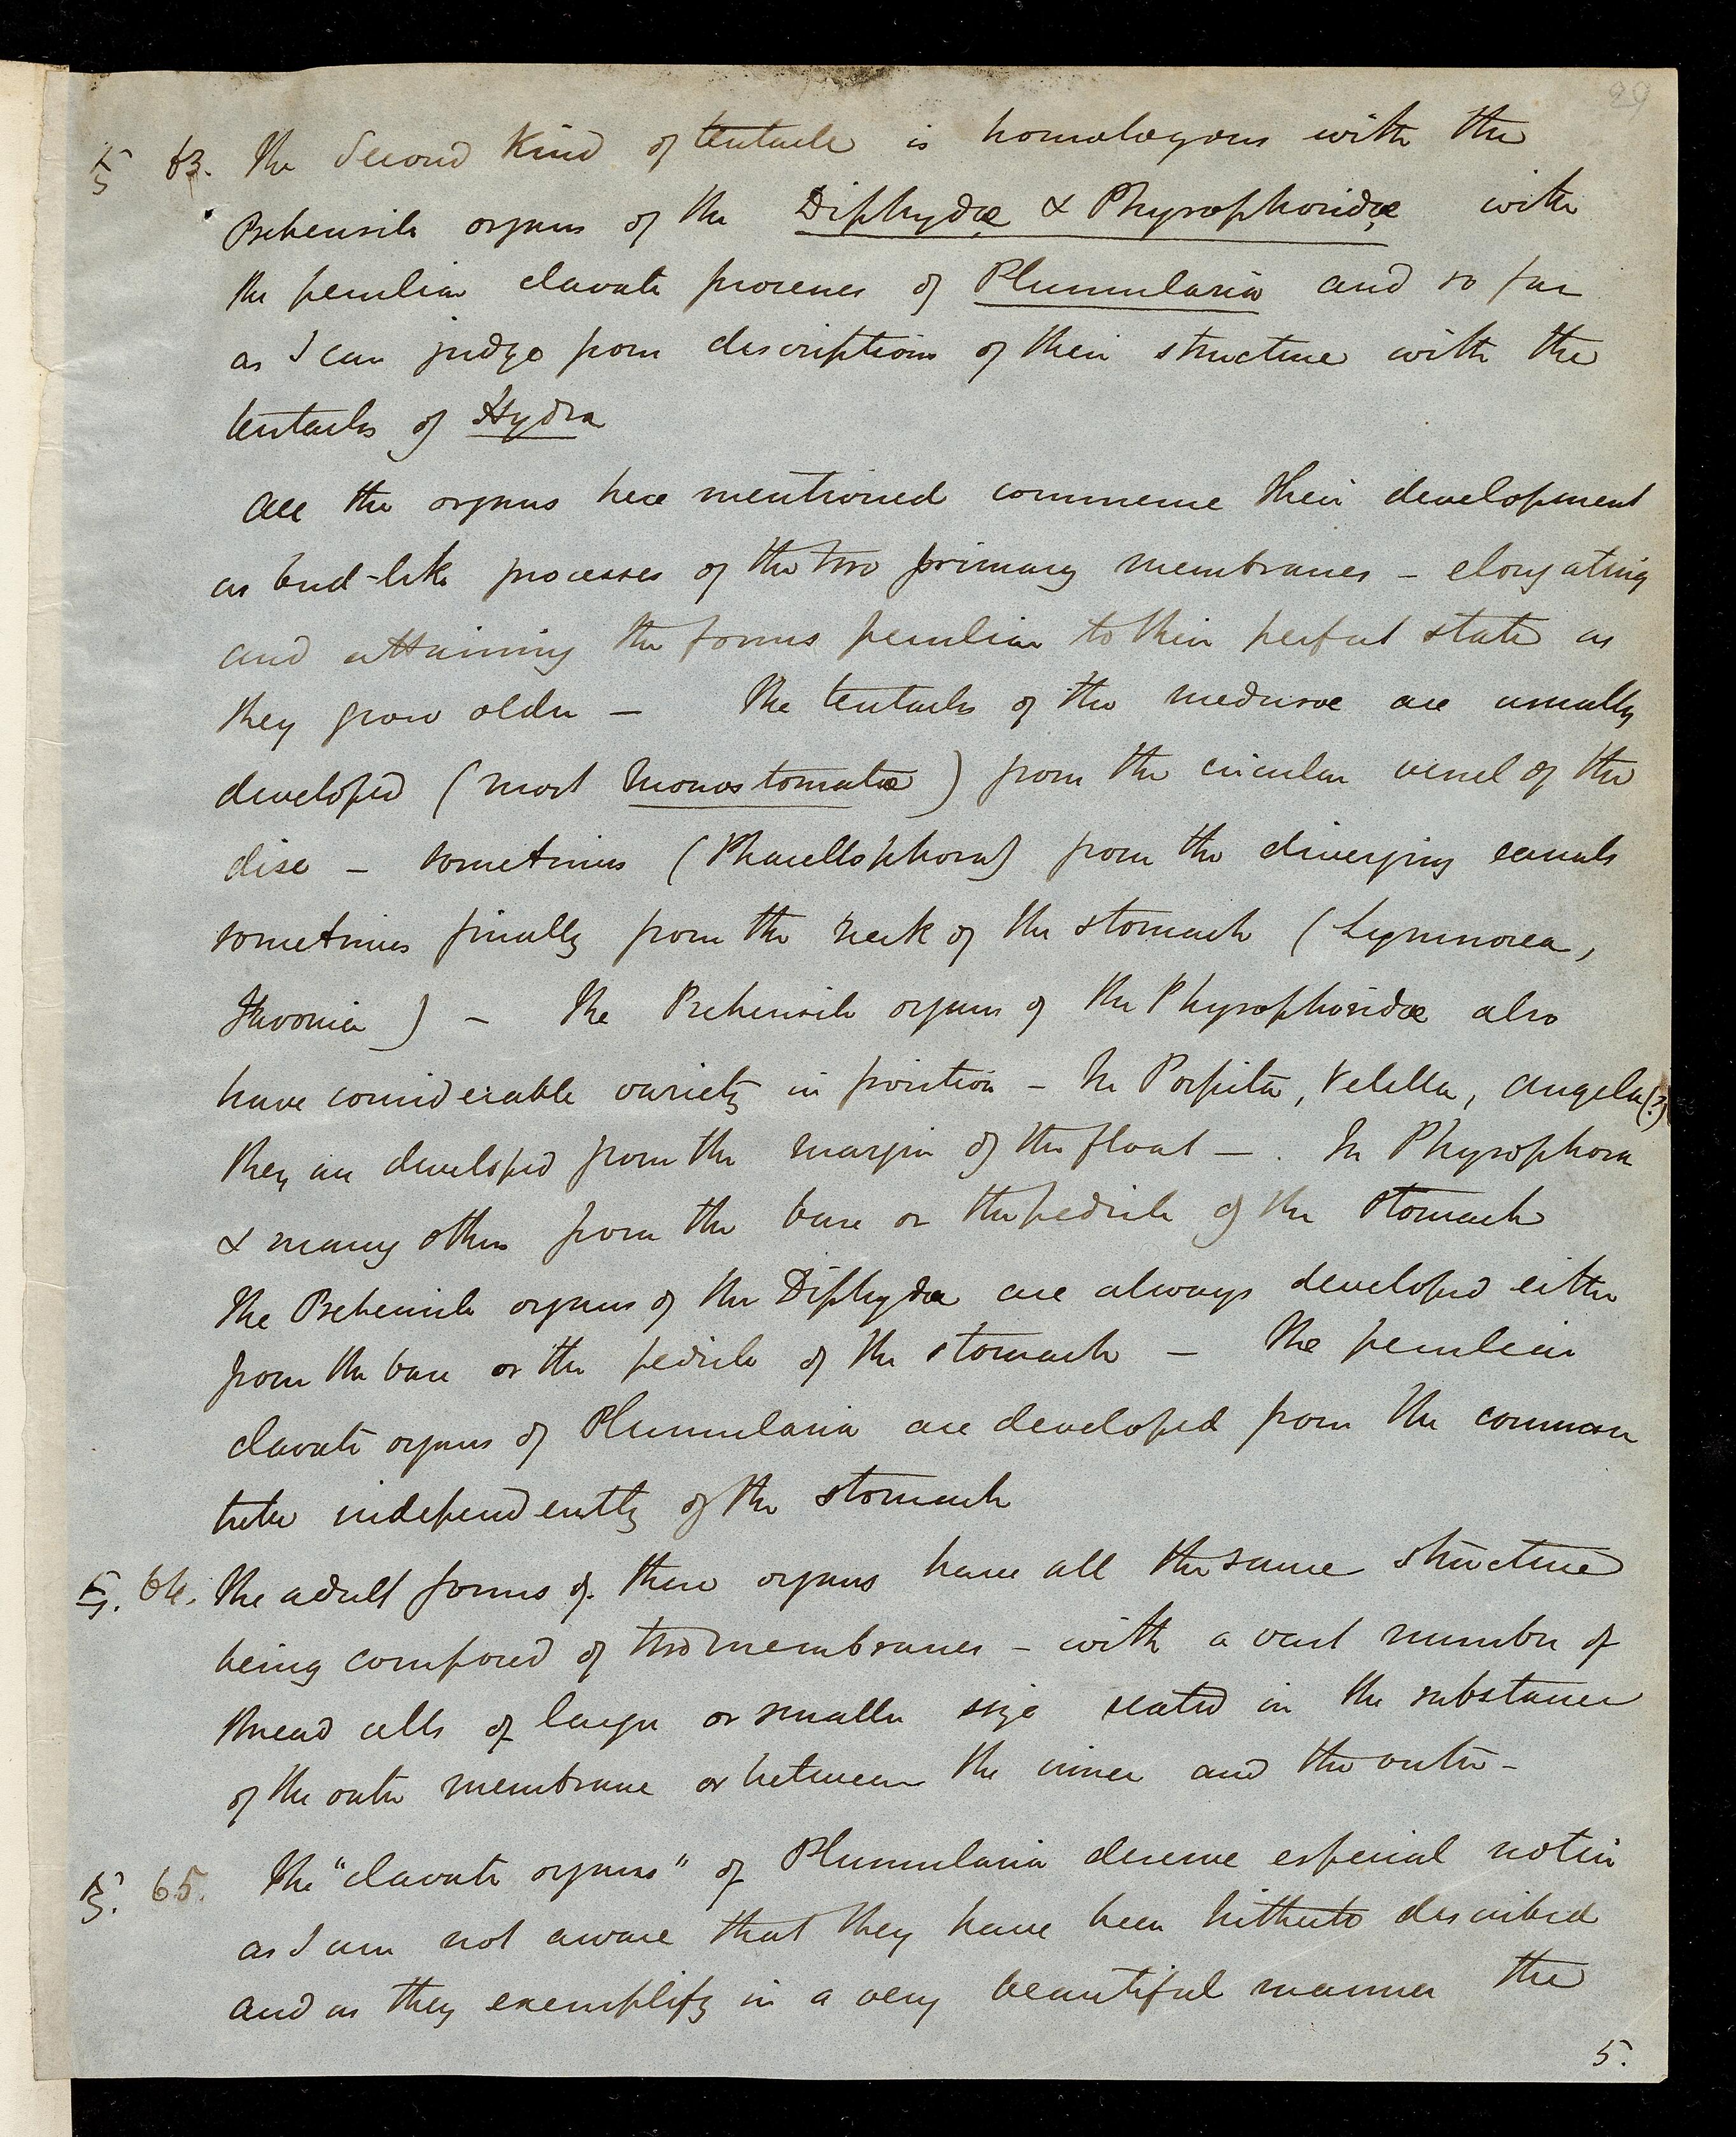 29
§ 63. The Second Kind of tentacle is homologous with the
Prehensile organs of the Diphydæ & Physophoridæ with
the peculiar clavate processes of Plumularia and so far
as I can judge from descriptions of their structure with the
tentacles of Hydra
All the organs here mentioned commence their development
as bud-like processes of the two primary membranes – elongating
and attaining the forms peculiar to their perfect state as
they grow older – The tentacles of the medusæ are usually
developed (most Monostomatæ) from the circular vessel of the
disc – sometimes (Phacellophora) from the diverging canals
sometimes finally from the neck of the stomach (Lymnorea,
Favonia) – The Prehensile organs of the Physophoridæ also
have considerable variety in position – In Porpita, Velella, Angela(?)
they are developed from the margin of the float – . In Physophora
& many others from the base or the pedicle of the stomach
The Prehensile organs of the Diphydæ are always developed either
from the base or the pedicle of the stomach – The peculiar
clavate organs of Plumularia are developed from the common
tube independently of the stomach
§. 64. The adult forms of these organs have all the same structure
being composed of two membranes – with a vast number of
thread cells of larger or smaller size seated in the substance
of the outer membrane or between the inner and the outer –
§. 65. The "clavate organs" of Plumularia deserve especial notice
as I am not aware that they have been hitherto described
and as they exemplify in a very beautiful manner the
5.